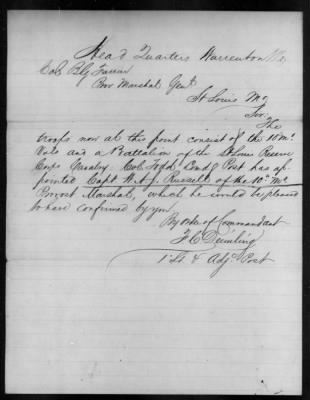 Head Quarters Warrenton Mo
Col B.G. Farrar
Prov Marshal Genl
St Louis Mo
Sir. The
troops now at this point consist of the 10 Mo
Vols and a Battalion of the St Louis Reserve
Corps Cavalry. Col Todd Comdg Post has ap-
pointed Capt Russell of the 10th Mo
Provost Marshal, which he would be pleased
to have confirmed by you
By order of Commandant
F C Deimling
1 Lt & Adjt Post